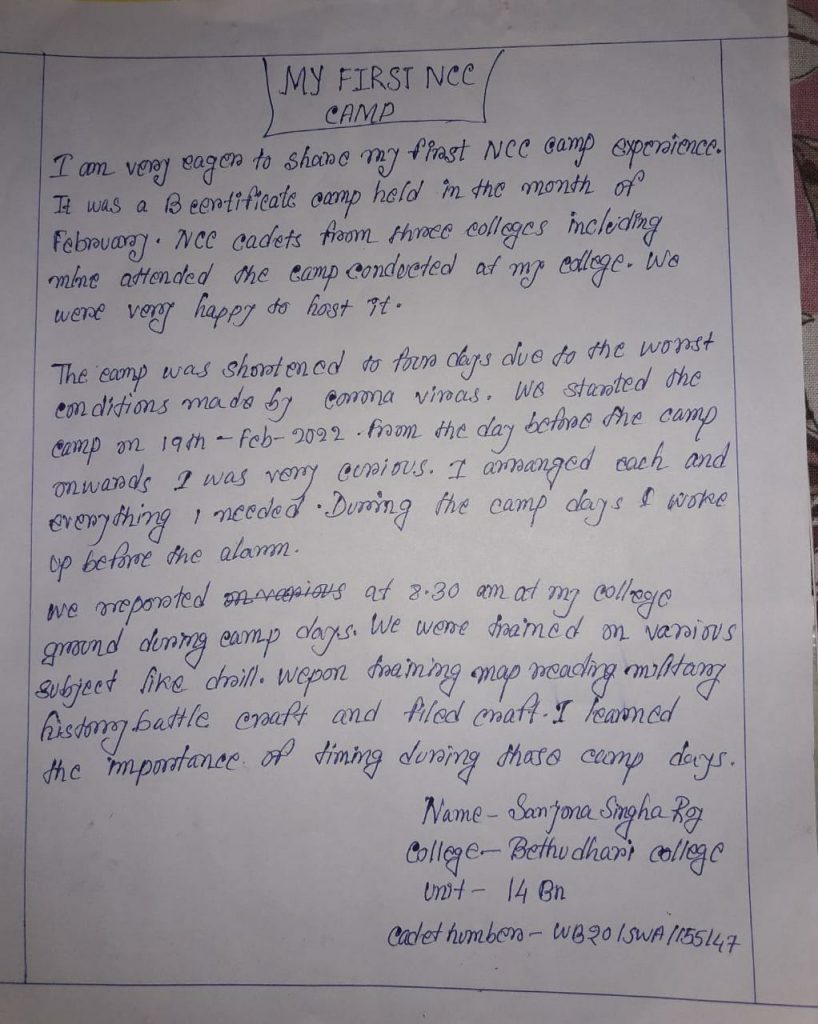 MY FIRST NCC
CAMP
I am very eager to share my first NCC camp experience.
It was a B certificate camp held in the month of
February. NCC cadets from three colleges including
mine attended the camp conducted at my college. We
were very happy to host it.
The camp was shortened to four days due to the worst
conditions made by corona viras. We started the
camp on 19th - Feb - 2022. from the day before the camp
onwards I was very curious. I arranged each and
everything I needed. During the camp days I woke
up before the alarm.
we reported on various at 8.30 am at my college
ground during camp days. We were trained on various
subject like drill. wepon training map reading military
history battle craft and filed craft. I learned
the importance of timing during those camp days.
Name - Sanjona Singha Roy
College - Bethudhari college
Unit - 14 Bn
Cadet number - WB20ISWA1155147